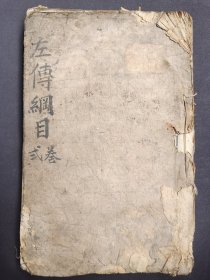 左傳綱目
卷弍